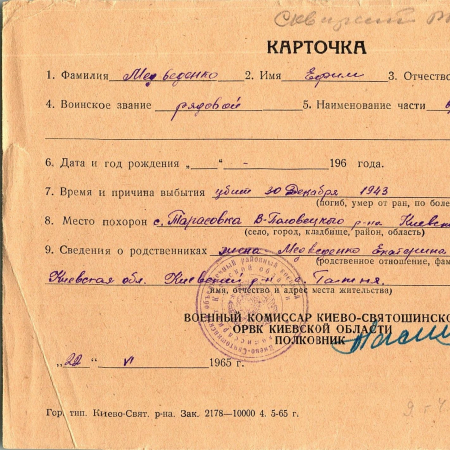 Сквирский
КАРТОЧКА
1. Фамилия Медведенко 2. Имя Ефим 3. Отчество
4. Воинское звание рядовой 5. Наименование части
6. Дата и год рождения „ “ - 196 года.
7. Время и причина выбытия убит 30 Декабря 1943
(погиб, умер от ран, по боле
8. Место похорон с. Тарасовка В-Половецкого р-на Киевск
(село, город, кладбище, район, область)
9. Сведения о родственниках жена Медведенко Екатерина
(родственное отношение, фам
Киевская обл. Киевский р-н с. Гатное
имя, отчество и адрес места жительства)
ВОЕННЫЙ КОМИССАР КИЕВО-СВЯТОШИНСКО
ОРВК КИЕВСКОЙ ОБЛАСТИ
ПОЛКОВНИК
„22“ VI 1965 г.
Гор. тип. Киево-Свят. р-на. Зак. 2178—10000 4. 5-65 г.